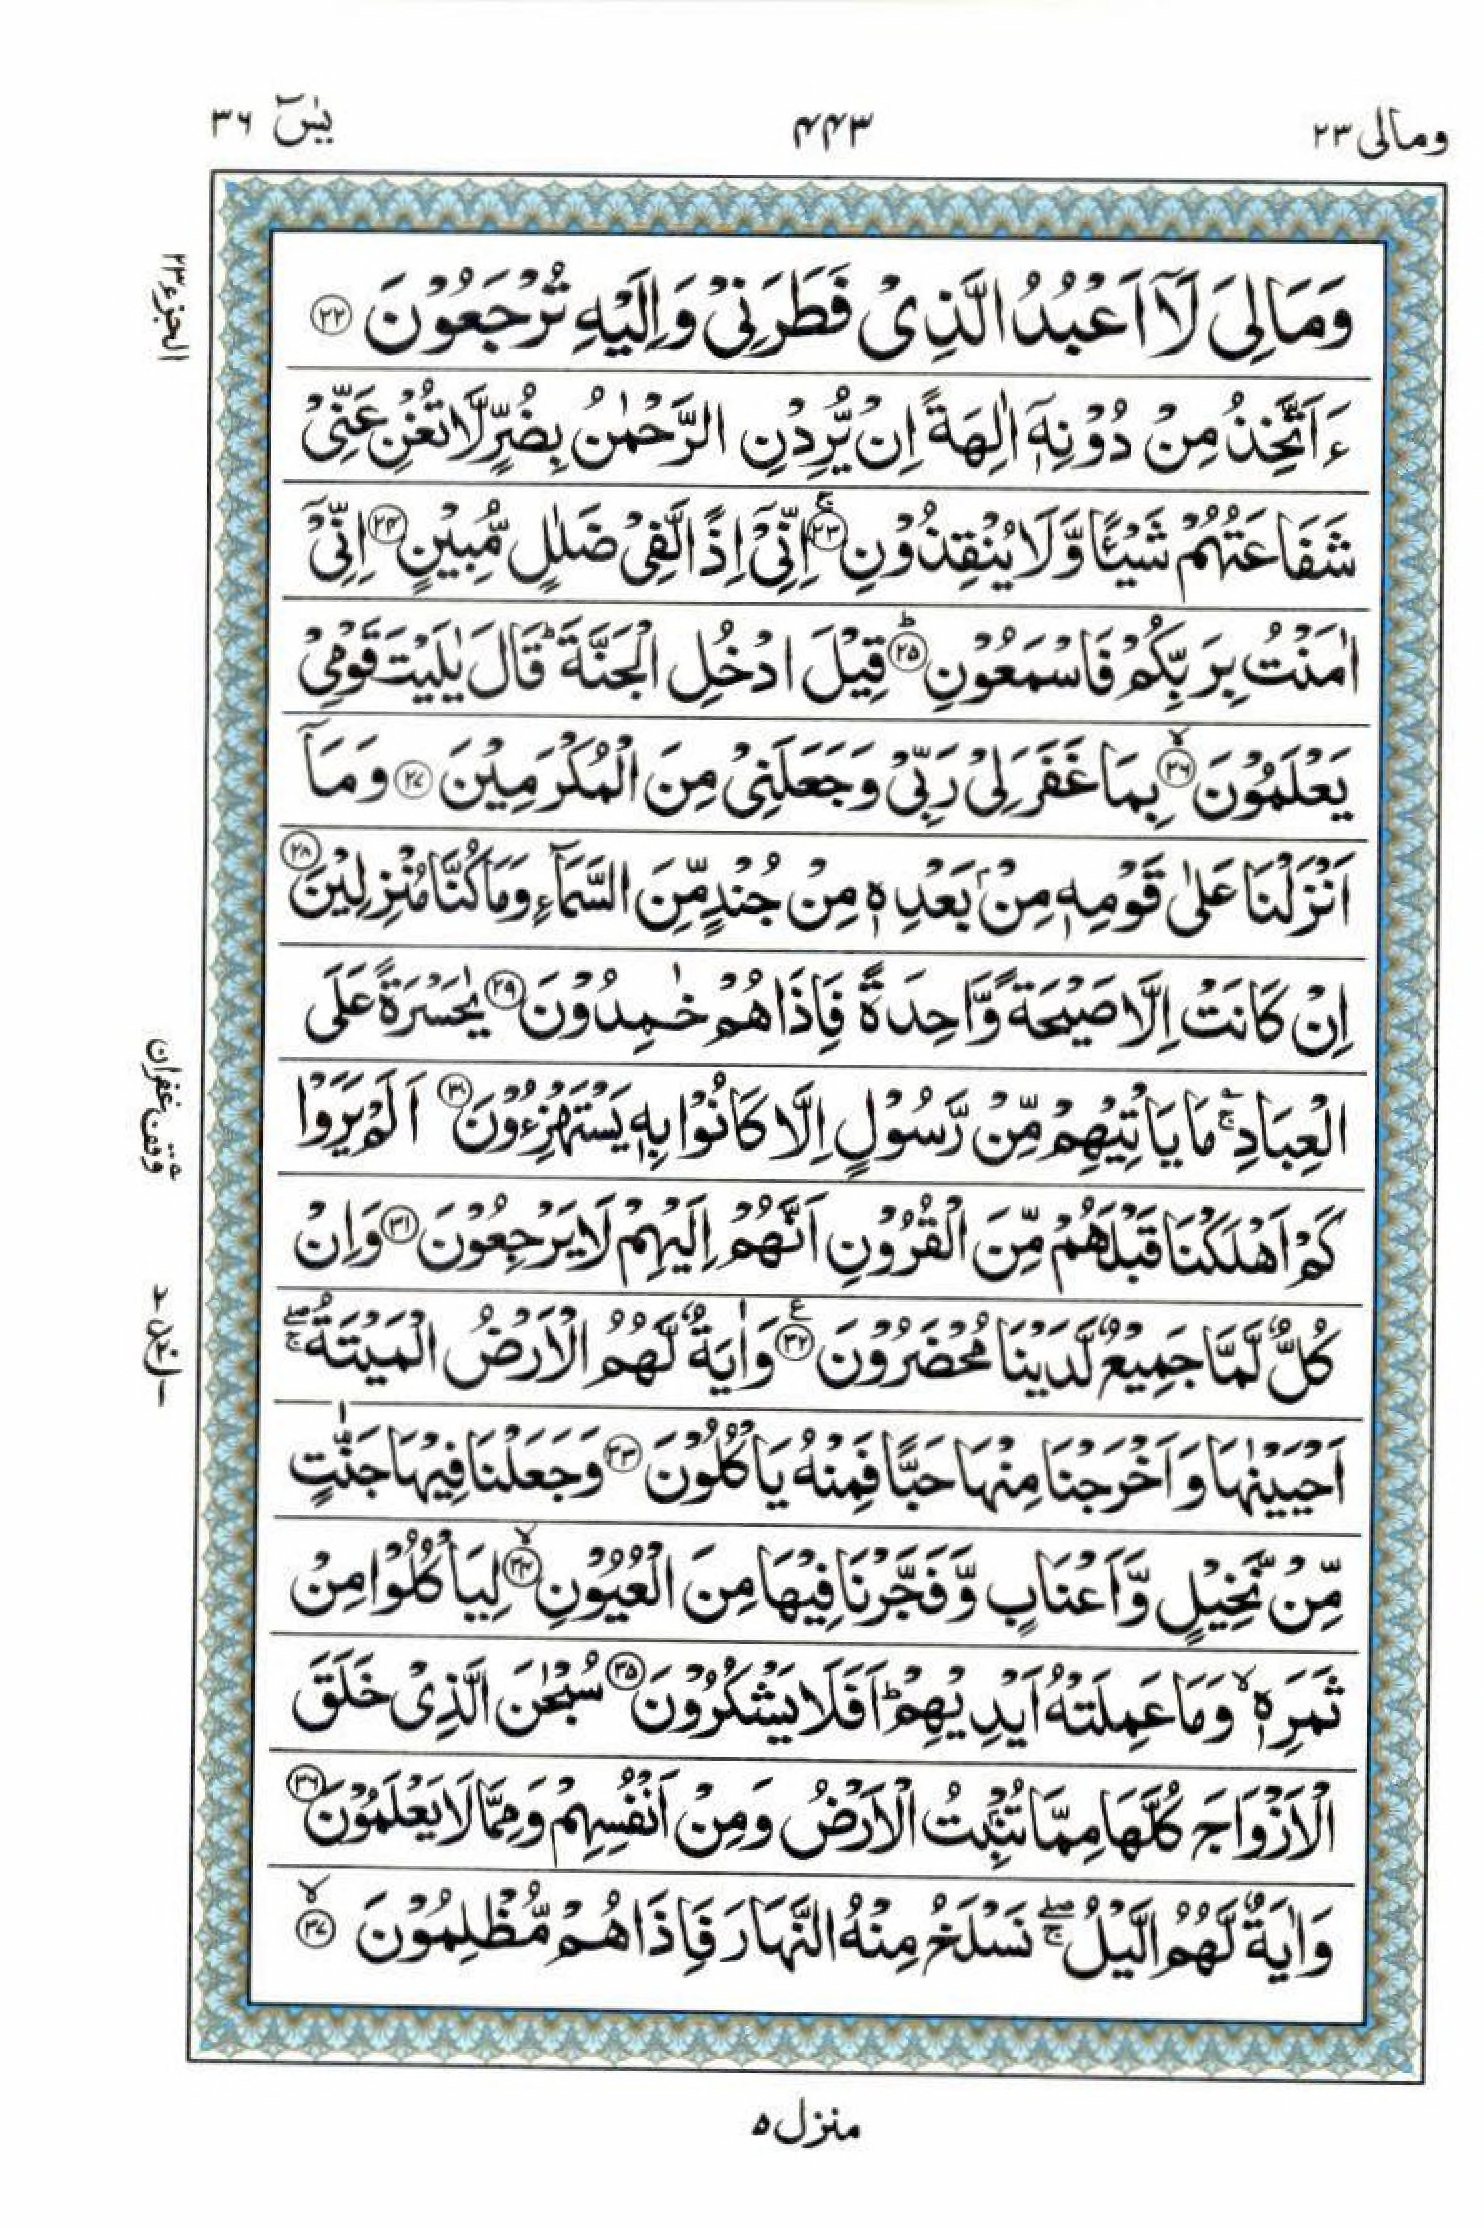 ومالى ٢٣
۴۴۳
يٰسٓ ٣٦
الجزء ٢٣
وَمَا لِىَ لَآ اَعْبُدُ الَّذِىْ فَطَرَنِىْ وَاِلَيْهِ تُرْجَعُوْنَ ﴿٢٢﴾
ءَاَتَّخِذُ مِنْ دُوْنِهٖٓ اٰلِهَةً اِنْ يُّرِدْنِ الرَّحْمٰنُ بِضُرٍّ لَّا تُغْنِ عَنِّىْ
شَفَاعَتُهُمْ شَيْـًٔا وَّلَا يُنْقِذُوْنِ ۚ﴿٢٣﴾ اِنِّىْٓ اِذًا لَّفِىْ ضَلٰلٍ مُّبِيْنٍ ﴿٢٤﴾ اِنِّىْٓ
اٰمَنْتُ بِرَبِّكُمْ فَاسْمَعُوْنِ ؕ﴿٢٥﴾ قِيْلَ ادْخُلِ الْجَنَّةَ ؕ قَالَ يٰلَيْتَ قَوْمِىْ
يَعْلَمُوْنَ ۙ﴿٢٦﴾ بِمَا غَفَرَ لِىْ رَبِّىْ وَجَعَلَنِىْ مِنَ الْمُكْرَمِيْنَ ﴿٢٧﴾ وَمَآ
اَنْزَلْنَا عَلٰى قَوْمِهٖ مِنْۢ بَعْدِهٖ مِنْ جُنْدٍ مِّنَ السَّمَآءِ وَمَا كُنَّا مُنْزِلِيْنَ ﴿٢٨﴾
اِنْ كَانَتْ اِلَّا صَيْحَةً وَّاحِدَةً فَاِذَا هُمْ خٰمِدُوْنَ ﴿٢٩﴾ يٰحَسْرَةً عَلَى
الْعِبَادِ ۚ مَا يَاْتِيْهِمْ مِّنْ رَّسُوْلٍ اِلَّا كَانُوْا بِهٖ يَسْتَهْزِءُوْنَ ﴿٣٠﴾ اَلَمْ يَرَوْا
وقف غفران
كَمْ اَهْلَكْنَا قَبْلَهُمْ مِّنَ الْقُرُوْنِ اَنَّهُمْ اِلَيْهِمْ لَا يَرْجِعُوْنَ ﴿٣١﴾ وَاِنْ
كُلٌّ لَّمَّا جَمِيْعٌ لَّدَيْنَا مُحْضَرُوْنَ ﴿٣٢﴾ع وَاٰيَةٌ لَّهُمُ الْاَرْضُ الْمَيْتَةُ ۖۚ
اَحْيَيْنٰهَا وَاَخْرَجْنَا مِنْهَا حَبًّا فَمِنْهُ يَاْكُلُوْنَ ﴿٣٣﴾ وَجَعَلْنَا فِيْهَا جَنّٰتٍ
مِّنْ نَّخِيْلٍ وَّاَعْنَابٍ وَّفَجَّرْنَا فِيْهَا مِنَ الْعُيُوْنِ ۙ﴿٣٤﴾ لِيَاْكُلُوْا مِنْ
ثَمَرِهٖ ۙ وَمَا عَمِلَتْهُ اَيْدِيْهِمْ ؕ اَفَلَا يَشْكُرُوْنَ ﴿٣٥﴾ سُبْحٰنَ الَّذِىْ خَلَقَ
الْاَزْوَاجَ كُلَّهَا مِمَّا تُنْۢبِتُ الْاَرْضُ وَمِنْ اَنْفُسِهِمْ وَمِمَّا لَا يَعْلَمُوْنَ ﴿٣٦﴾
وَاٰيَةٌ لَّهُمُ الَّيْلُ ۖۚ نَسْلَخُ مِنْهُ النَّهَارَ فَاِذَا هُمْ مُّظْلِمُوْنَ ۙ﴿٣٧﴾
منزل ٥